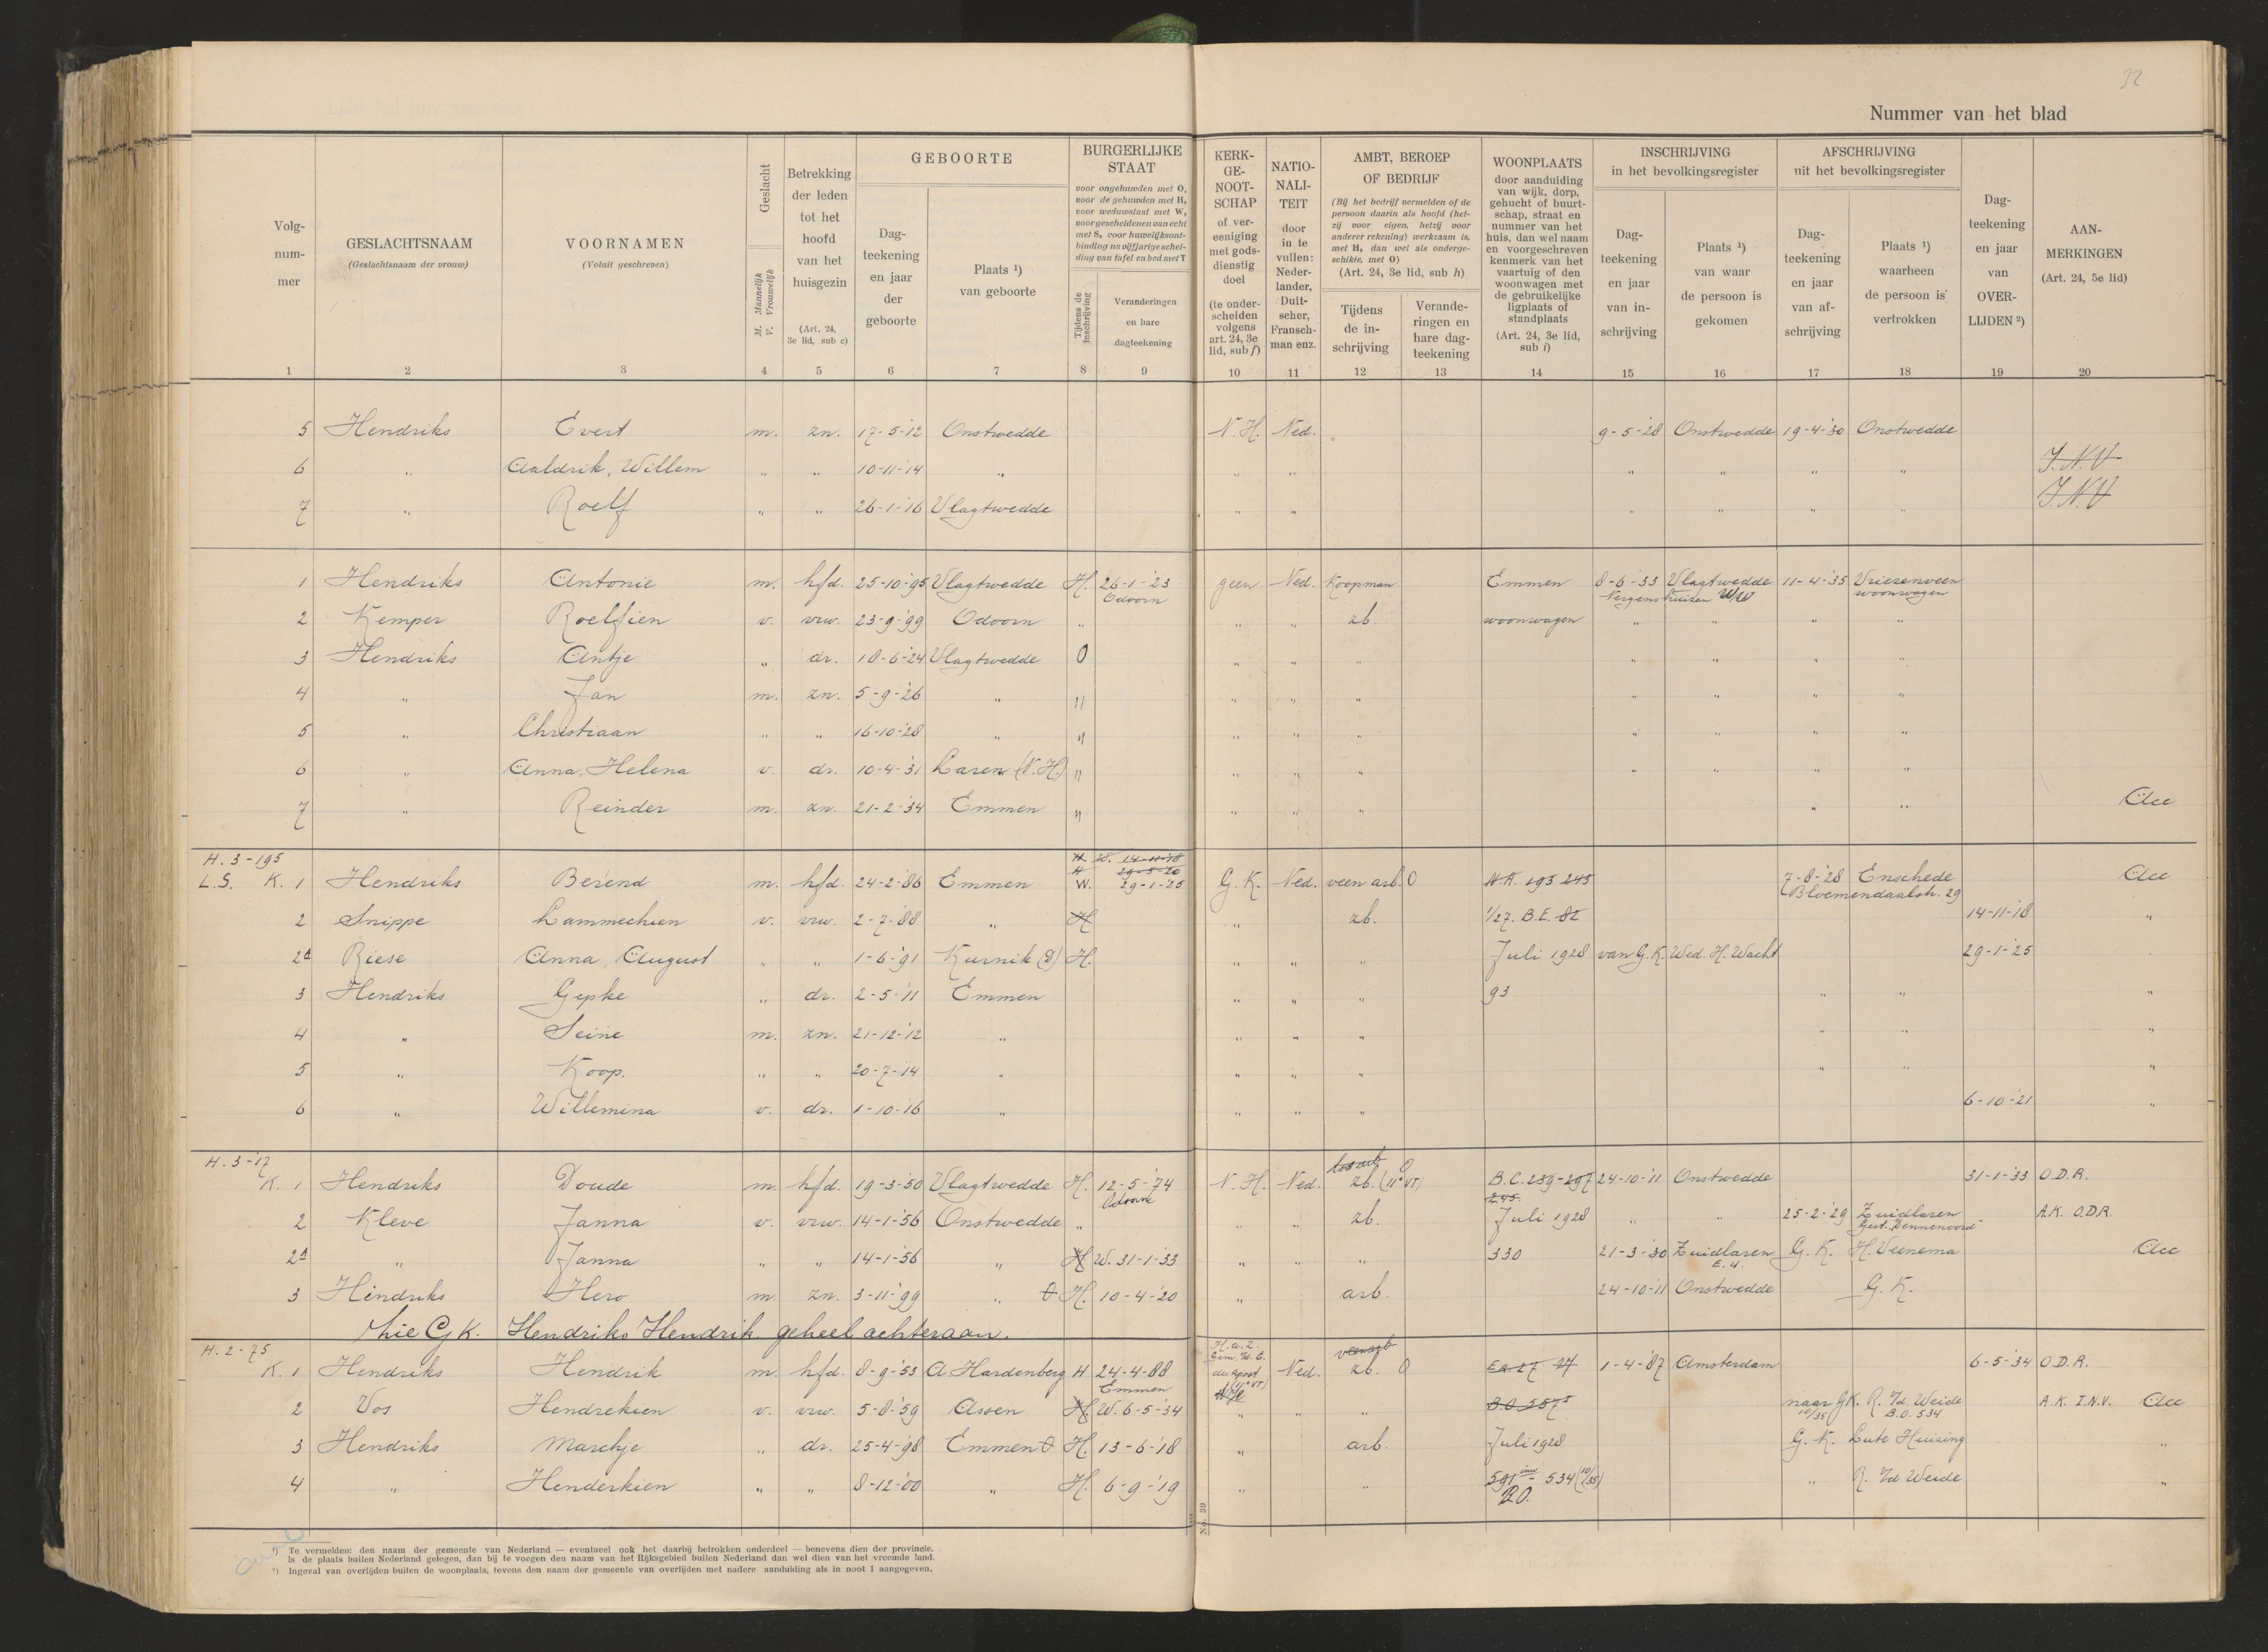 32
Nummer van het blad
Volg-nummer 1
GESLACHTSNAAM (Geslachtsnaam der vrouw) 2
VOORNAMEN (Voluit geschreven) 3
Geslacht M. Mannelijk V. Vrouwelijk 4
Betrekking der leden tot het hoofd van het huisgezin (Art. 24, 3e lid, sub c) 5
GEBOORTE
Dag-teekening en jaar der geboorte 6
Plaats ¹) van geboorte 7
BURGERLIJKE STAAT
voor ongehuwden met O, voor de gehuwden met H, voor weduwstaat met W, voor gescheidenen van echt met S, voor huwelijksont-binding na vijfjarige schei-ding van tafel en bed met T
Tijdens de inschrijving 8
Veranderingen en hare dagteekening 9
KERK-GE-NOOT-SCHAP of ver-eeniging met gods-dienstig doel (te onder-scheiden volgens art. 24, 3e lid, sub f) 10
NATIO-NALI-TEIT door in te vullen: Neder-lander, Duit-scher, Fransch-man enz. 11
AMBT, BEROEP OF BEDRIJF
(Bij het bedrijf vermelden of de persoon daarin als hoofd (het-zij voor eigen, hetzij voor anderer rekening) werkzaam is, met H, dan wel als onderge-schikte, met O) (Art. 24, 3e lid, sub h)
Tijdens de in-schrijving 12
Verande-ringen en hare dag-teekening 13
WOONPLAATS door aanduiding van wijk, dorp, gehucht of buurt-schap, straat en nummer van het huis, dan wel naam en voorgeschreven kenmerk van het vaartuig of den woonwagen met de gebruikelijke ligplaats of standplaats (Art. 24, 3e lid, sub i) 14
INSCHRIJVING in het bevolkingsregister
Dag-teekening en jaar van in-schrijving 15
Plaats ¹) van waar de persoon is gekomen 16
AFSCHRIJVING uit het bevolkingsregister
Dag-teekening en jaar van af-schrijving 17
Plaats ¹) waarheen de persoon is vertrokken 18
Dag-teekening en jaar van OVER-LIJDEN ²) 19
AAN-MERKINGEN (Art. 24, 5e lid) 20
5 Hendriks Evert m. zn. 17-5-'12 Onstwedde N.H. Ned. 9-5-'28 Onstwedde 19-4-'30 Onstwedde
6 " Aaldrik, Willem " " 10-11-'14 " " " " " " " I.N.V
7 " Roelf " " 26-1-'16 Vlagtwedde " " " " " " I.N.V
1 Hendriks Antonie m. hfd. 25-10-'95 Vlagtwedde H. 26-1-'23 Odoorn geen Ned. Koopman Emmen 8-6-'33 Vlagtwedde 11-4-'35 Vriezenveen
Nergenshuizen W/W woonwagen
2 Kemper Roelfien v. vrw. 23-9-'99 Odoorn " " " zb. woonwagen " " " "
3 Hendriks Antje " dr. 18-6-'24 Vlagtwedde O " " " " " " "
4 " Jan m. zn. 5-9-'26 " " " " " " " " "
5 " Christiaan " " 16-10-'28 " " " " " " " " "
6 " Anna, Helena v. dr. 10-4-'31 Laren (N.H.) " " " " " " " "
7 " Reinder m. zn. 21-2-'34 Emmen " " " " " " Acc
H. 3-195
L.S. K. 1 Hendriks Berend m. hfd. 24-2-'86 Emmen H. W. 14-11-'18 H 29-5-'20 W. 29-1-'25 G.K. Ned. veen arb. O 193 245 7-8-'28 Enschede Acc
Bloemendaalstr. 29
2 Snippe Lammechien v. vrw. 2-7-'88 " H " zb. 1/27. B.E. 82 14-11-'18 "
2a Riese Anna, August " " 1-6-'91 Kurnik (D) H. " " " Juli 1928 van G.K. Wed. H. Wacht 29-1-'25
3 Hendriks Gepke " dr. 2-5-'11 Emmen " " " 93 " " "
4 " Seine m. zn. 21-12-'12 " " " " " " "
5 " Koop. " " 20-7-'14 " " " " " " "
6 " Willemina v. dr. 1-10-'16 " " " " 6-10-'21 "
H. 3-17
K. 1 Hendriks Doude m. hfd. 19-3-'50 Vlagtwedde H. 12-5-'74 Odoorn N.H. Ned. los arb O zb. (11e VT) B.C. 239-297 245 24-10-'11 Onstwedde 31-1-'33 O.D.R.
2 Kleve Janna v. vrw. 14-1-'56 Onstwedde " " " zb. Juli 1928 " " 25-2-'29 Zuidlaren Gest. "Dennenoord" A.K. O.D.R.
2a " Janna " " 14-1-'56 " H W. 31-1-'33 " " " 330 21-3-'30 Zuidlaren E.4. G.K. H. Veenema Acc
3 Hendriks Hero m. zn. 3-11-'99 " O H. 10-4-'20 " arb. 24-10-'11 Onstwedde G.K.
zie GK. Hendriks Hendrik geheel achteraan.
H. 2-75
K. 1 Hendriks Hendrik m. hfd. 8-9-'53 A. Hardenberg H 24-4-'88 Emmen Ned. veenarb zb. O 1-4-'87 Amsterdam 6-5-'34 O.D.R.
2 Vos Hendrekien v. vrw. 5-8-'59 Assen H W. 6-5-'34 " " " naar GK. R. v/d. Weide 10/35 B.O. 534 A.K. I.N.V. Acc
3 Hendriks Marchje " dr. 25-4-'98 Emmen O H. 13-6-'18 " arb. Juli 1928 G.K. Lute Huising "
4 " Henderkien " " 8-12-'00 " H. 6-9-'19 " " 591 534 (10/35) B.O. " R. v/d Weide "
No. 39
¹) Te vermelden: den naam der gemeente van Nederland — eventueel ook het daarbij betrokken onderdeel — benevens dien der provincie.
Is de plaats buiten Nederland gelegen, dan bij te voegen den naam van het Rijksgebied buiten Nederland dan wel dien van het vreemde land.
²) Ingeval van overlijden buiten de woonplaats, tevens den naam der gemeente van overlijden met nadere aanduiding als in noot 1 aangegeven.